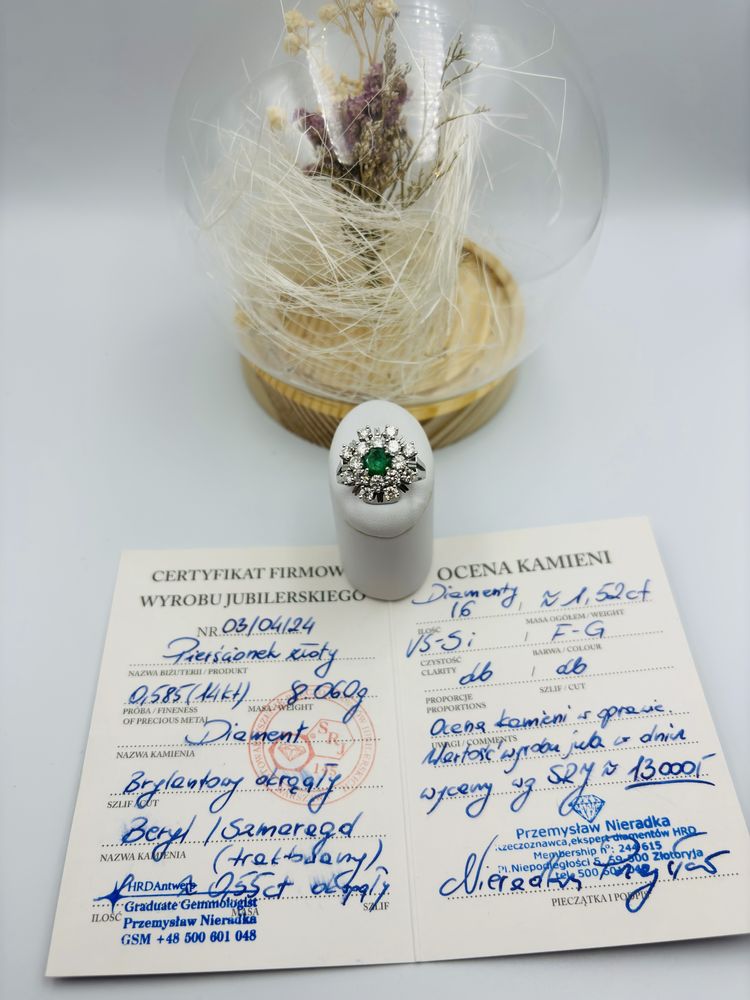 CERTYFIKAT FIRMOW
WYROBU JUBILERSKIEGO
NR. 03/04/24
Pierścionek złoty
NAZWA BIŻUTERII / PRODUKT
0,585 (14kt) 8.060g
PRÓBA / FINENESS MASA / WEIGHT
OF PRECIOUS METAL
Diament
NAZWA KAMIENIA
SRJ
Brylantowy okrągły
SZLIF / CUT
Beryl / Szmaragd
NAZWA KAMIENIA
(traktowany)
0,55ct okrągły
ILOŚĆ MASA SZLIF
HRD Antwerp
Graduate Gemmologist
Przemysław Nieradka
GSM +48 500 601 048
OCENA KAMIENI
Diamenty
16 / ≈ 1,52ct
ILOŚĆ MASA OGÓŁEM / WEIGHT
VS-Si / F-G
CZYSTOŚĆ BARWA / COLOUR
CLARITY
db / db
PROPORCJE SZLIF / CUT
PROPORTIONS
Ocena kamieni w oprawie
UWAGI / COMMENTS
Wartość wyrobu jub. w dniu
wyceny wg SRJ ≈ 13000
Przemysław Nieradka
rzeczoznawca, ekspert diamentów HRD
Membership n°: 244615
Pl. Niepodległości 5, 59-500 Złotoryja
PIECZĄTKA I PODPIS